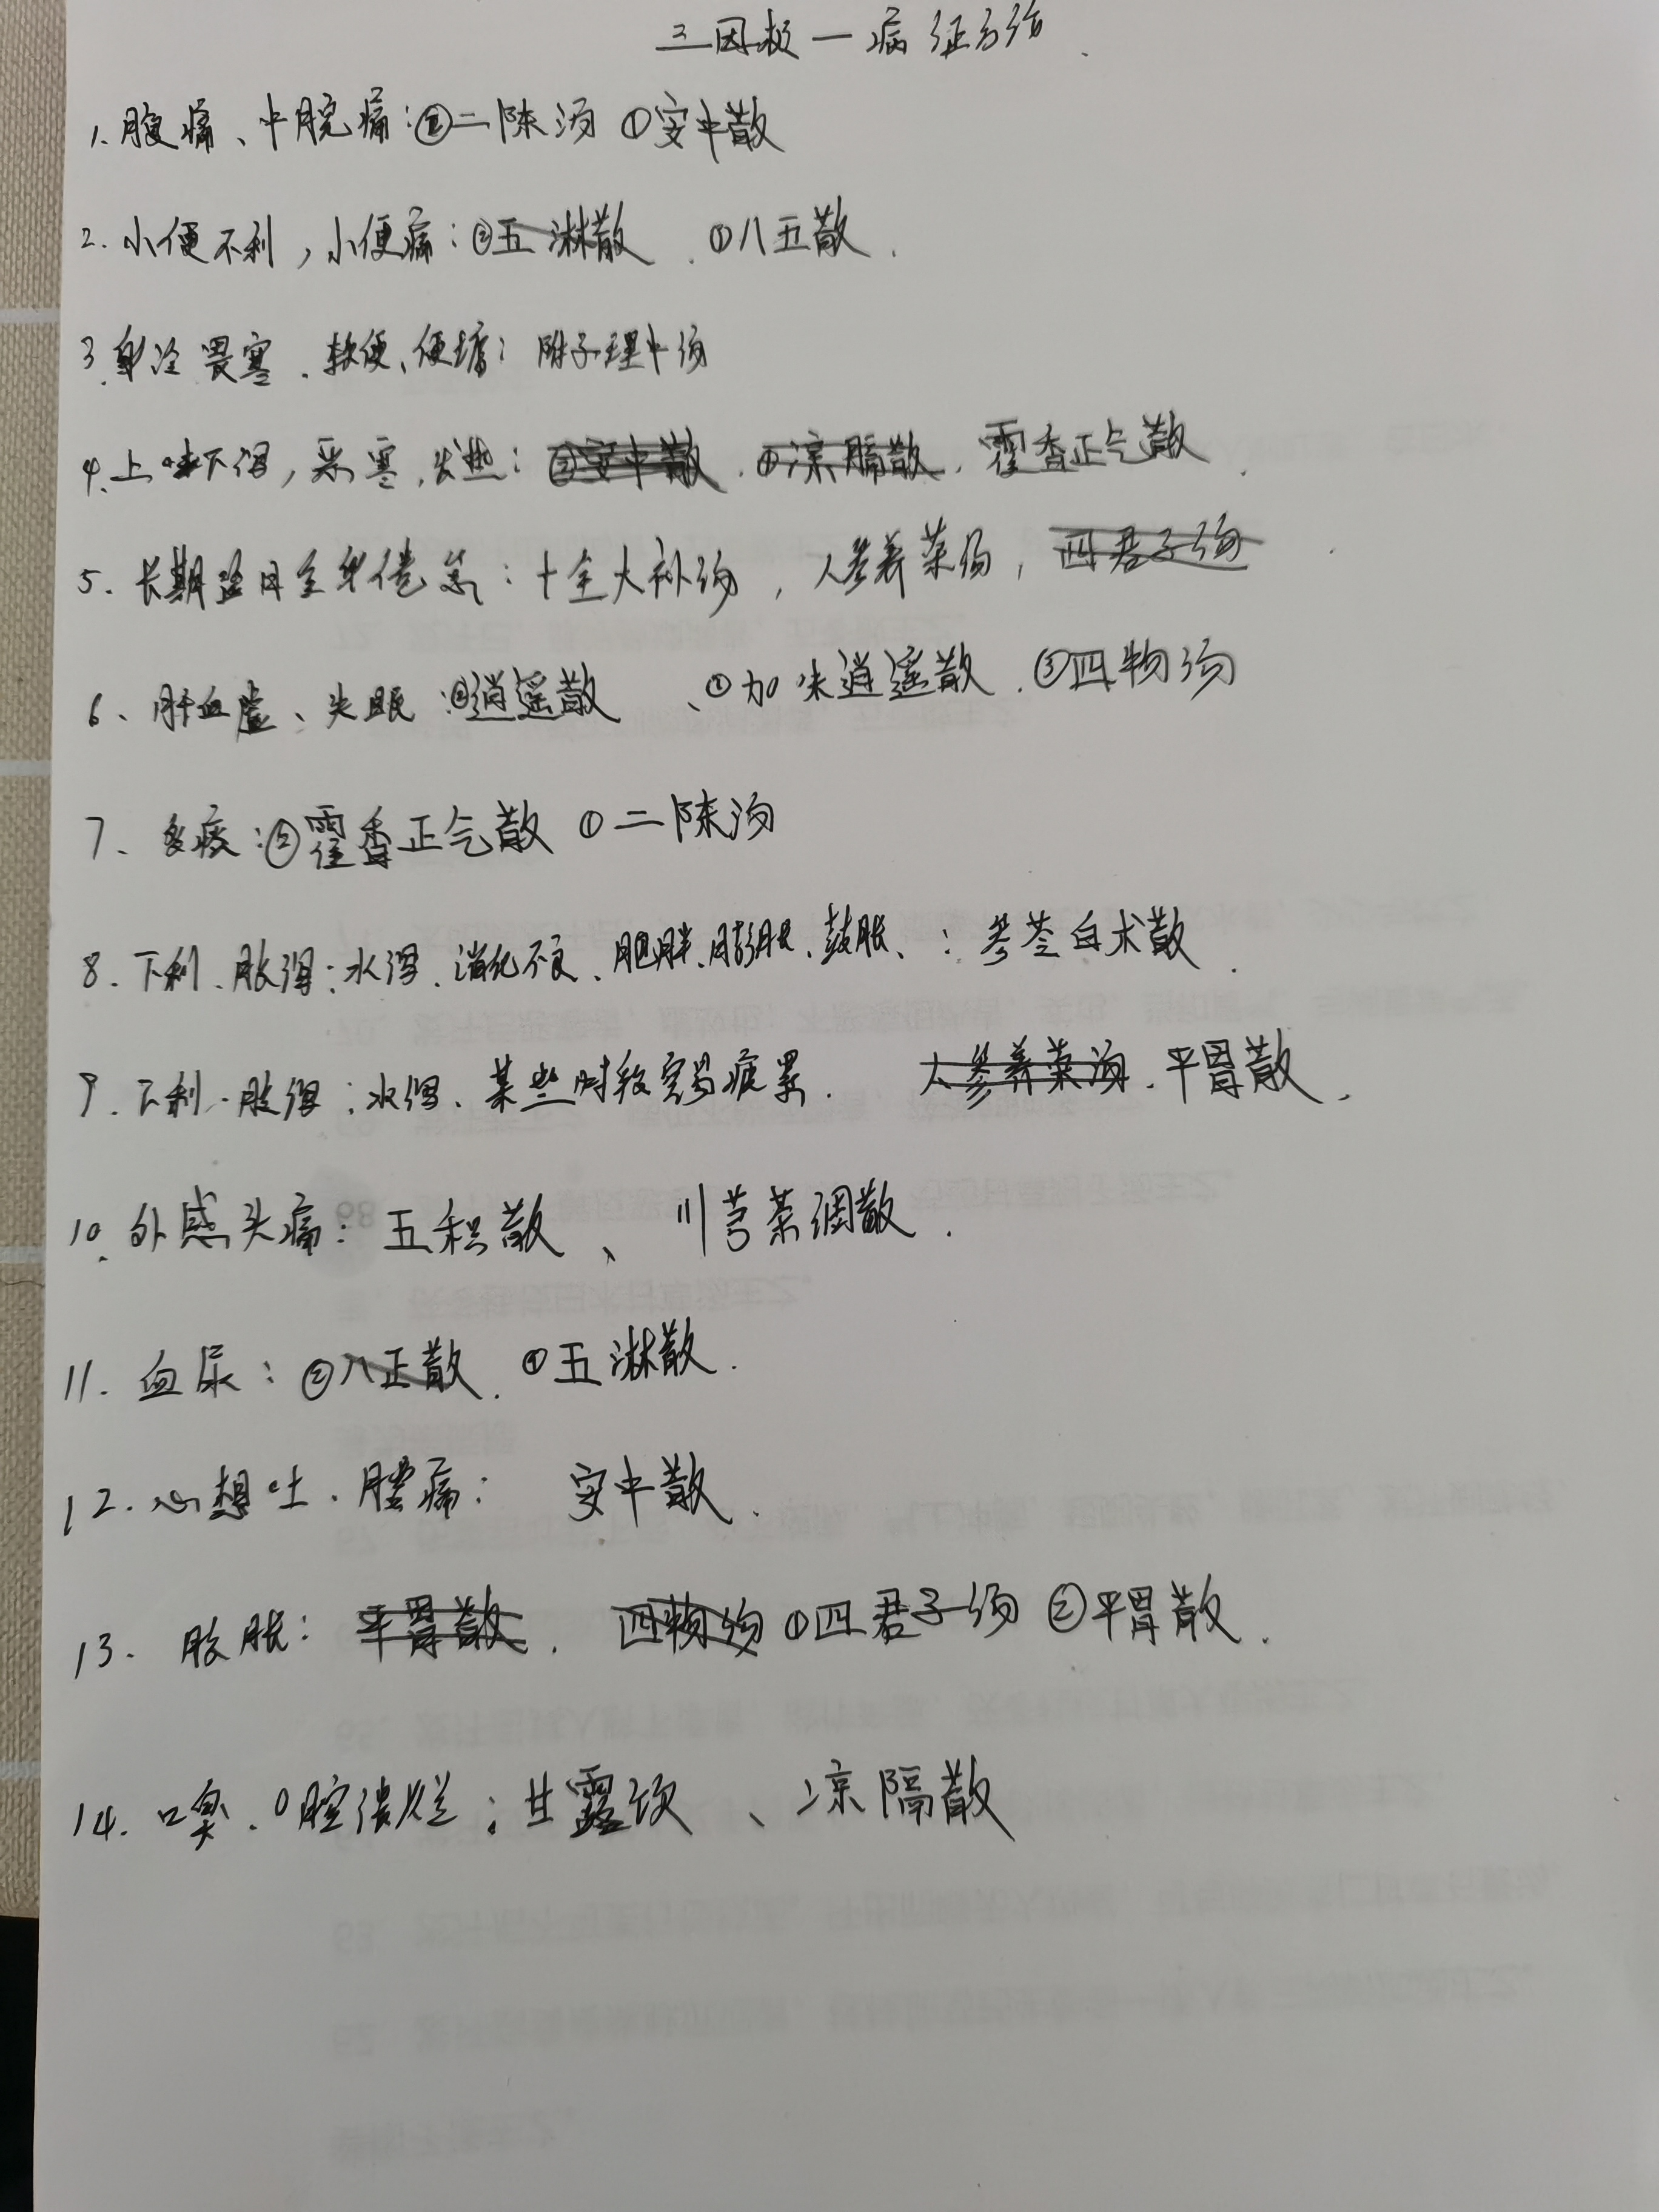 三因极一病证方论
1. 腹痛、中脘痛:②二陈汤 ①安中散
2. 小便不利,小便痛:②五淋散 . ①八正散 .
3. 身冷畏寒 . 软便、便溏: 附子理中汤
4. 上吐下泻,恶寒,发热: ②安中散 . ①凉膈散 . 藿香正气散 .
5. 长期整日全身倦怠:十全大补汤 , 人参养荣汤 , 四君子汤
6、肝血虚、失眠:②逍遥散 、①加味逍遥散 . ③四物汤
7、多痰:②藿香正气散 ①二陈汤
8. 下利、腹泻:水泻、消化不良、肥胖、膨胀、鼓胀、: 参苓白术散 .
9. 下利、腹泻:水泻、某些时段容易疲累 . 人参养荣汤 . 平胃散 .
10. 外感头痛: 五积散 、 川芎茶调散 .
11. 血尿:②八正散 . ①五淋散 .
12. 心想吐 . 痛: 安中散 .
13. 腹胀: 平胃散 . 四物汤 ①四君子汤 ②平胃散 .
14. 口臭 . 口腔溃烂:甘露饮 、凉隔散